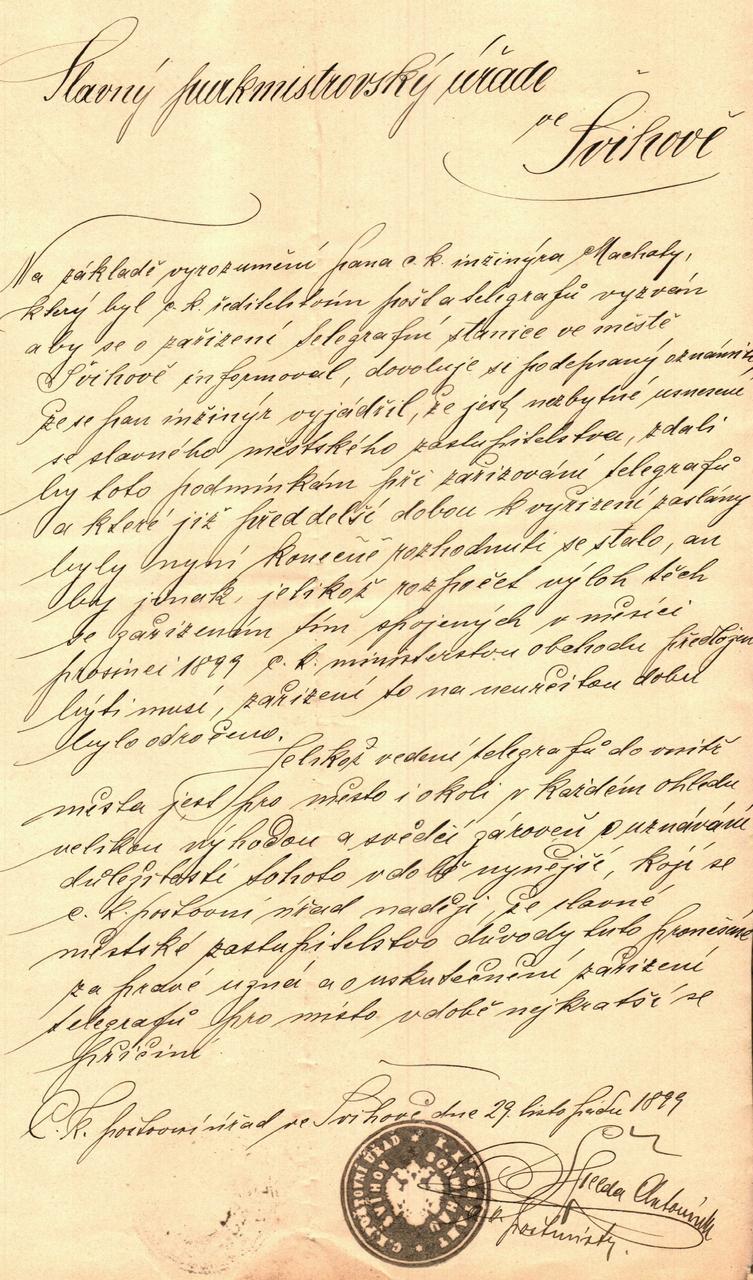 Slavný purkmistrovský úřade
ve Švihově
Na základě vyrozumění pana c. k. inžinýra Machaty,
který byl c. k. ředitelstvím pošt a telegrafů vyzván
aby se o zařízení telegrafní stanice ve městě
Švihově informoval, dovoluje si podepsaný oznámiti,
že se pan inžinýr vyjádřil, že jest nezbytné usnesení
se slavného městského zastupitelstva, zdali
by toto podmínkám při zařizování telegrafů
a které již před delší dobou k vyřízení zaslány
byly nyní konečně rozhodnutí se stalo, an
by jinak, jelikož rozpočet výloh těch
se zařízením tím spojených v měsíci
prosinci 1899 c. k. ministerstvu obchodu předložen
býti musí, zařízení to na neurčitou dobu
bylo odročeno.
Jelikož vedení telegrafů do vnitř
města jest pro město i okolí v každém ohledu
velikou výhodou a svědčí zároveň o uznávání
důležitosti tohoto v době nynější kojí se
c. k. poštovní úřad nadějí, že slavné
městské zastupitelstvo důvody tuto pronešené
za pravé uzná a o uskutečnění zařízení
telegrafů pro místo v době nejkratší se
přičiní
C. k. poštovní úřad ve Švihově dne 29. listopadu 1899
C.K. POŠTOVNÍ ÚŘAD ŠVIHOV
K.K. POSTAMT SCHWIHAU
Antonín
c. k. poštmistr.